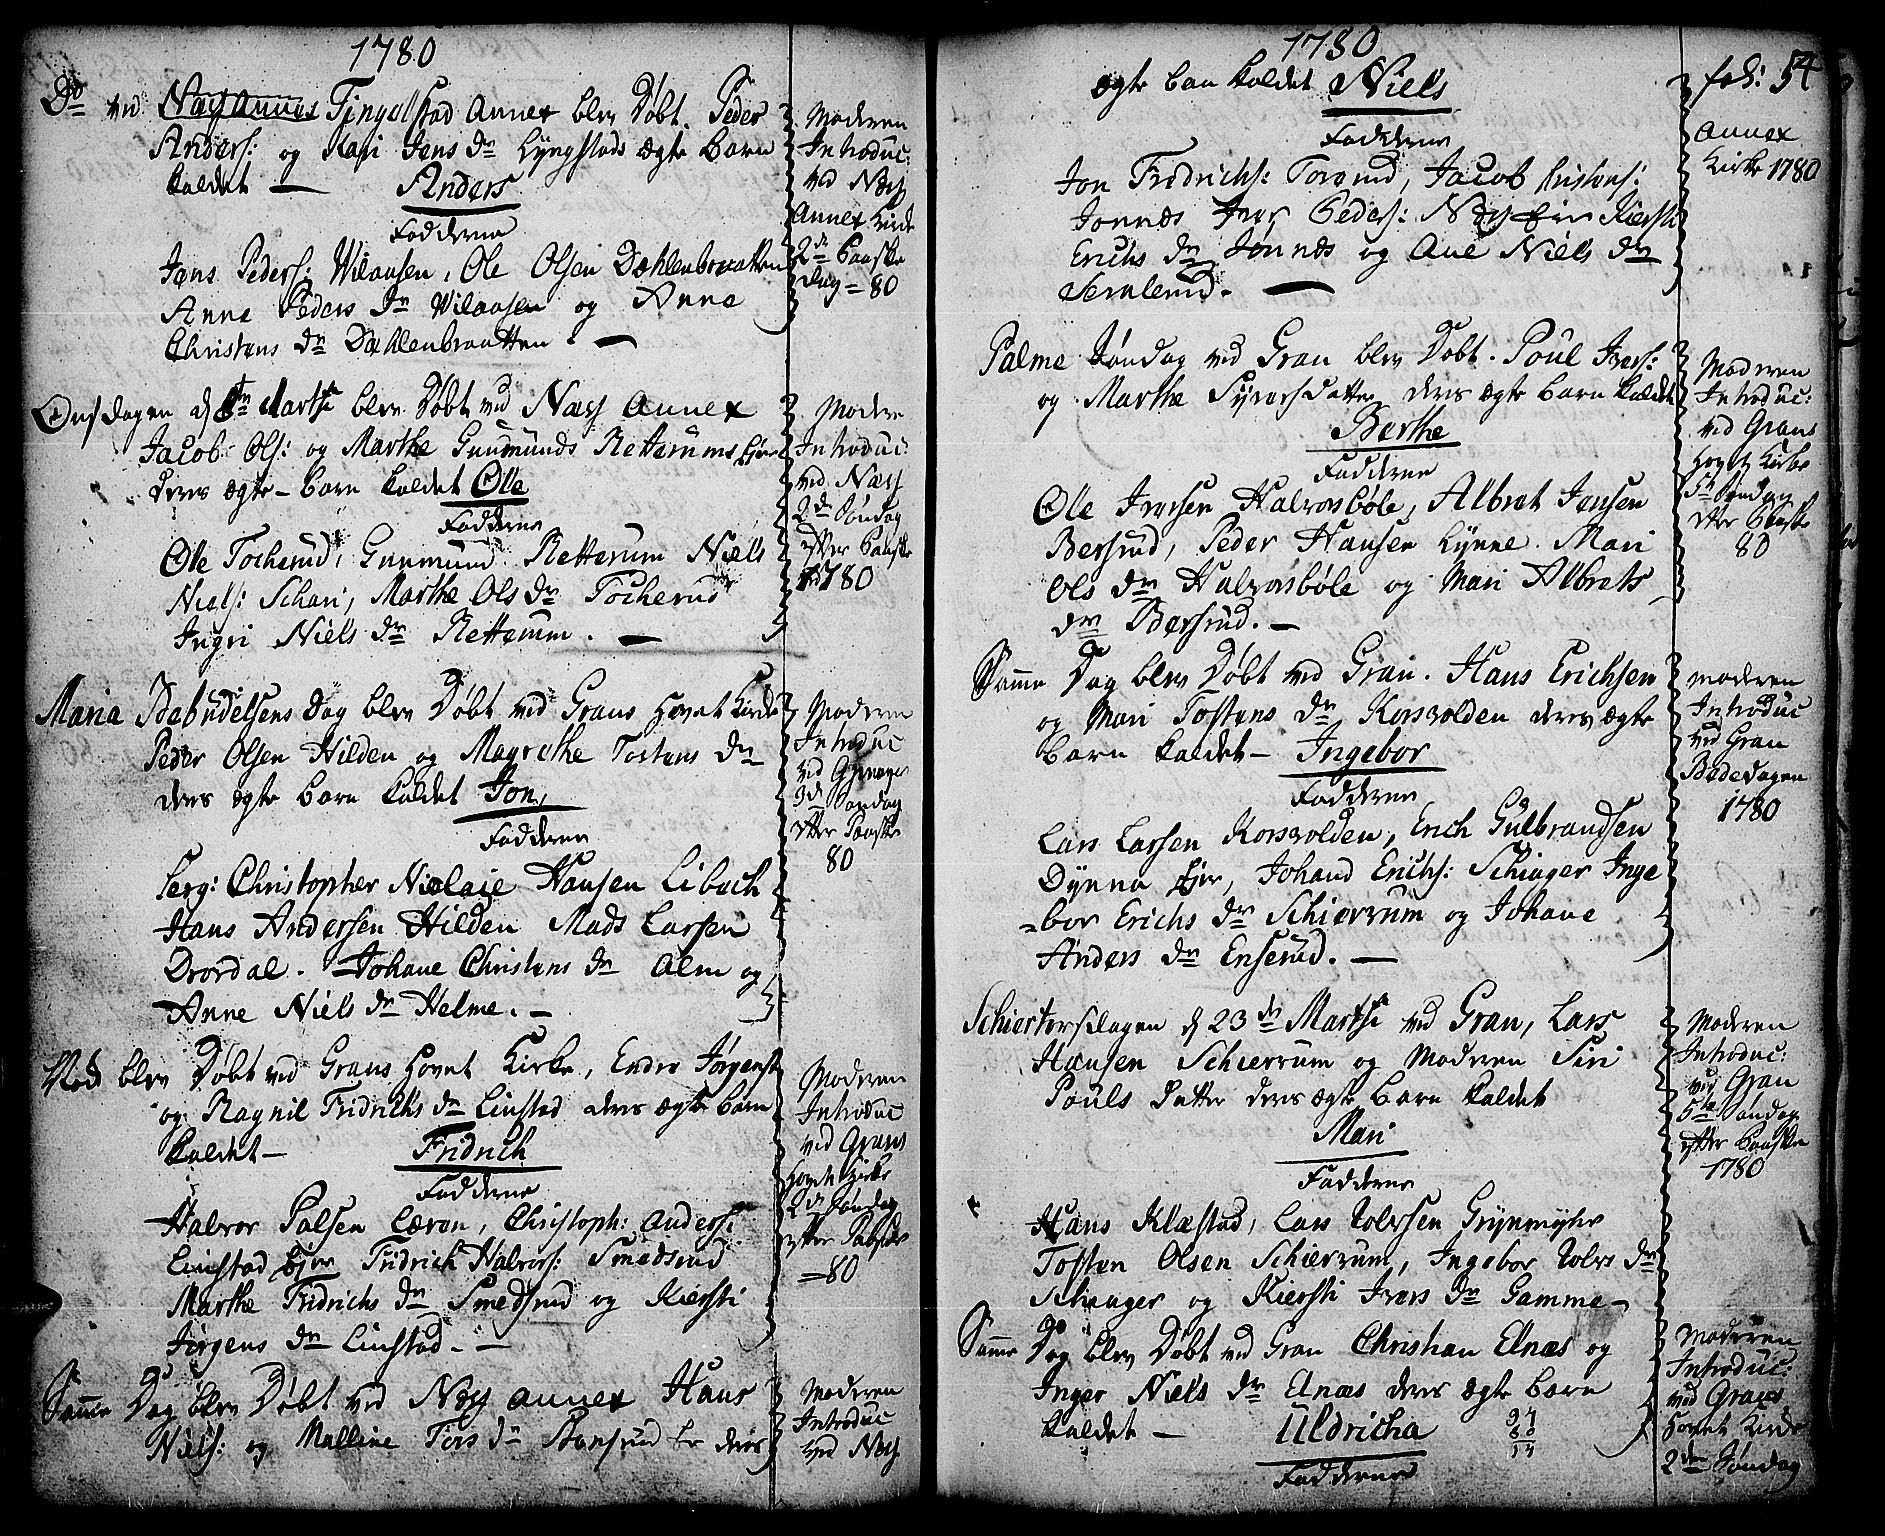 1780
Do ved Tingelstad Annex blev Døbt. Peder
Anders: og Kari Jens Dr Lyngstads ægte Barn
kaldet — Anders
Fadderne
Jens Peders: Vilaasen, Ole Olsen Dæhlenbraatten
Anne Peders Dr Vilaasen og Anne
Christens Dr Dæhlenbraatten. —
Moderen
Introduc:
ved Næs
Annex Kirke
2den Paaske
dag = 80
Onsdagen d Martii blev Døbt ved Næs Annex
Jacob Ols: og Marthe Gunmunds Retterums Ejer
deres ægte Barn kaldet Ole
Fadderne
Ole Tocherud, Gunmund Retterum Niels
Niels: Schari, Marthe Ols Dr Tocherud
Ingri Niels Dr Retterum. —
Modere
Introduc:
ved Næs
2de Søndag
efter Paaske
1780
Maria Bebudelsens Dag blev Døbt ved Grans Hovet Kirke
Peder Olsen Hilden og Magrethe Tostens Dr
deres ægte Barn kaldet Jon,
Fadderne
Serg: Christopher Nicolaie Hansen Libach
Hans Andersen Hilden Mads Larsen
Drovdal. Johane Christens Dr Alm og
Anne Niels Dr Helme. —
Moderen
Introduc
ved
3de Søndag
efter Paaske
80
blev Døbt ved Grans Hovet Kirke, Endre Jørgens:
og Ragnil Fridrichs Dr Linstad deres ægte Barn
kaldet — Fridrich
Fadderne
Halvor Palsen Læron, Christoph: Anders:
Linstad Ejer Fridrich Halvors: Smedsrud
Marthe Fridrichs Dr Smedsrud og Kiersti
Jørgens Dr Linstad. —
Moderen
Introduc
ved Grans
Hovet Kirke
2de Søndag
efter Paaske
= 80
Samme Dag blev Døbt ved Næs Annex Hans
Niels: og Malline Tors Dr deres
Moderen
Introduc
ved Næs
1780
fol: 54
ægte Barn kaldet Niels
Fadderne
Jon Fridrichs: Jacob Christens:
Jonnæs Iver Peders: Næs Kiersti
Erichs Dr Jønnæs og Ane Niels Dr
Annex
Kirke 1780
Palme Søndag ved Gran blev Døbt. Poul Ivers:
og Marthe Syversdatter deres ægte Barn kaldet
Berthe
Fadderne
Ole Iversen Halvorsbøle, Albret Jensen
Bersrud, Peder Hansen Lynne. Mari
Ols Dr Halvorsbøle og Mari Albrets
Dr Bersrud. —
Moderen
Introduc:
ved Grans
Hovet Kirke
5te Søndag
efter Paaske
80
Samme Dag blev Døbt ved Gran. Hans Erichsen
og Mari Tostens Dr Korsvolden deres ægte
Barn kaldet — Ingebor
Fadderne
Lars Larsen Korsvolden, Erich Gulbrandsen
Dynna Ejer, Johand Erichs: Schiager Inge
=bor Erichs Dr Schierrum og Johane
Anders Dr Enserud. —
Moderen
Introduc
ved Gran
Bededagen
1780
Schiertorsdagen d 23de Martii ved Gran, Lars
Hansen Schierrum og Moderen Siri
Pouls Datter deres ægte Barn kaldet
Mari
Fadderne
Hans Klæstad, Lars Tolvsen Grynmyhr
Tosten Olsen Schierrum, Ingebor Tolvs Dr
Schiager og Kiersti Ivers Dr Gamme —
Moderen
Introduc:
ved Gran
5te Søndag
efter Paaske
1780
Samme Dag blev Døbt ved Gran Christian Elnæs og
Inger Niels Dr Elnæs deres ægte Barn
kaldet — Uldricha
94
80
14
Fadderne
Moderen
Introduc:
ved Grans
Hovet Kirke
2den Søndag